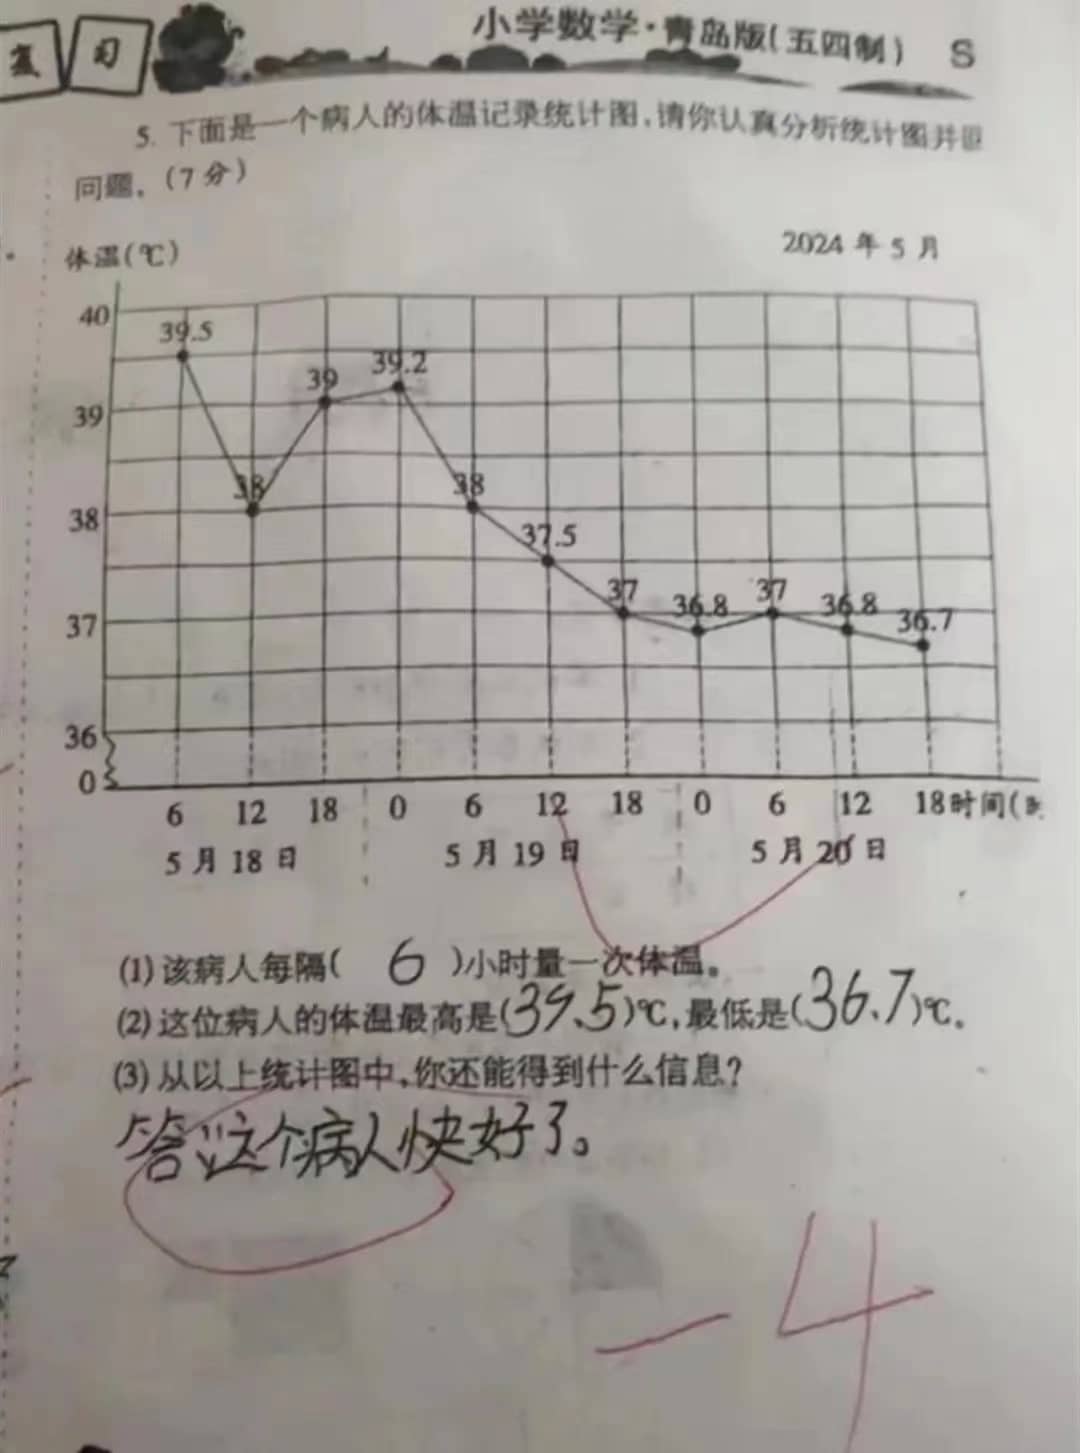 复习
小学数学·青岛版(五四制) S
5. 下面是一个病人的体温记录统计图,请你认真分析统计图并回
问题。(7分)
体温(℃)
2024年5月
40
39
38
37
36
0
39.5
38
39
39.2
38
37.5
37
36.8
37
36.8
36.7
6 12 18 0 6 12 18 0 6 12 18时间(时
5月18日 5月19日 5月20日
(1)该病人每隔( 6 )小时量一次体温。
(2)这位病人的体温最高是(39.5)℃,最低是(36.7)℃。
(3)从以上统计图中,你还能得到什么信息?
答:这个病人快好了。
-4